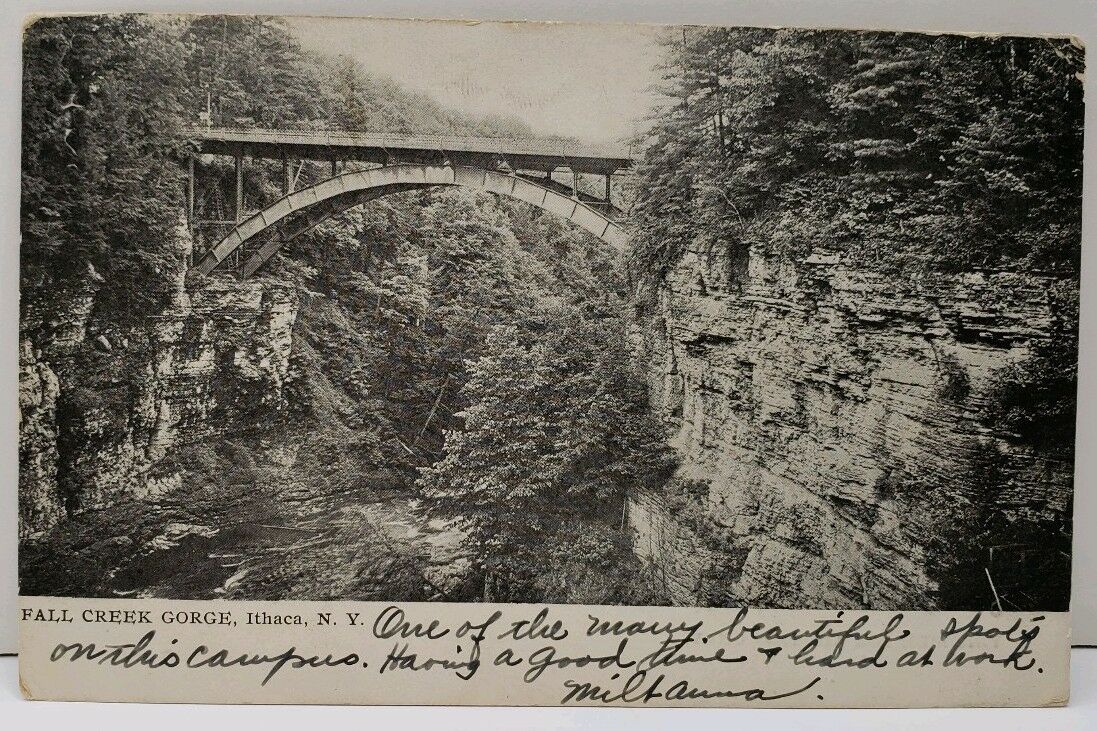 FALL CREEK GORGE, Ithaca, N. Y. One of the many beautiful spots
on this campus. Having a good time + hard at work.
Milt Anna.